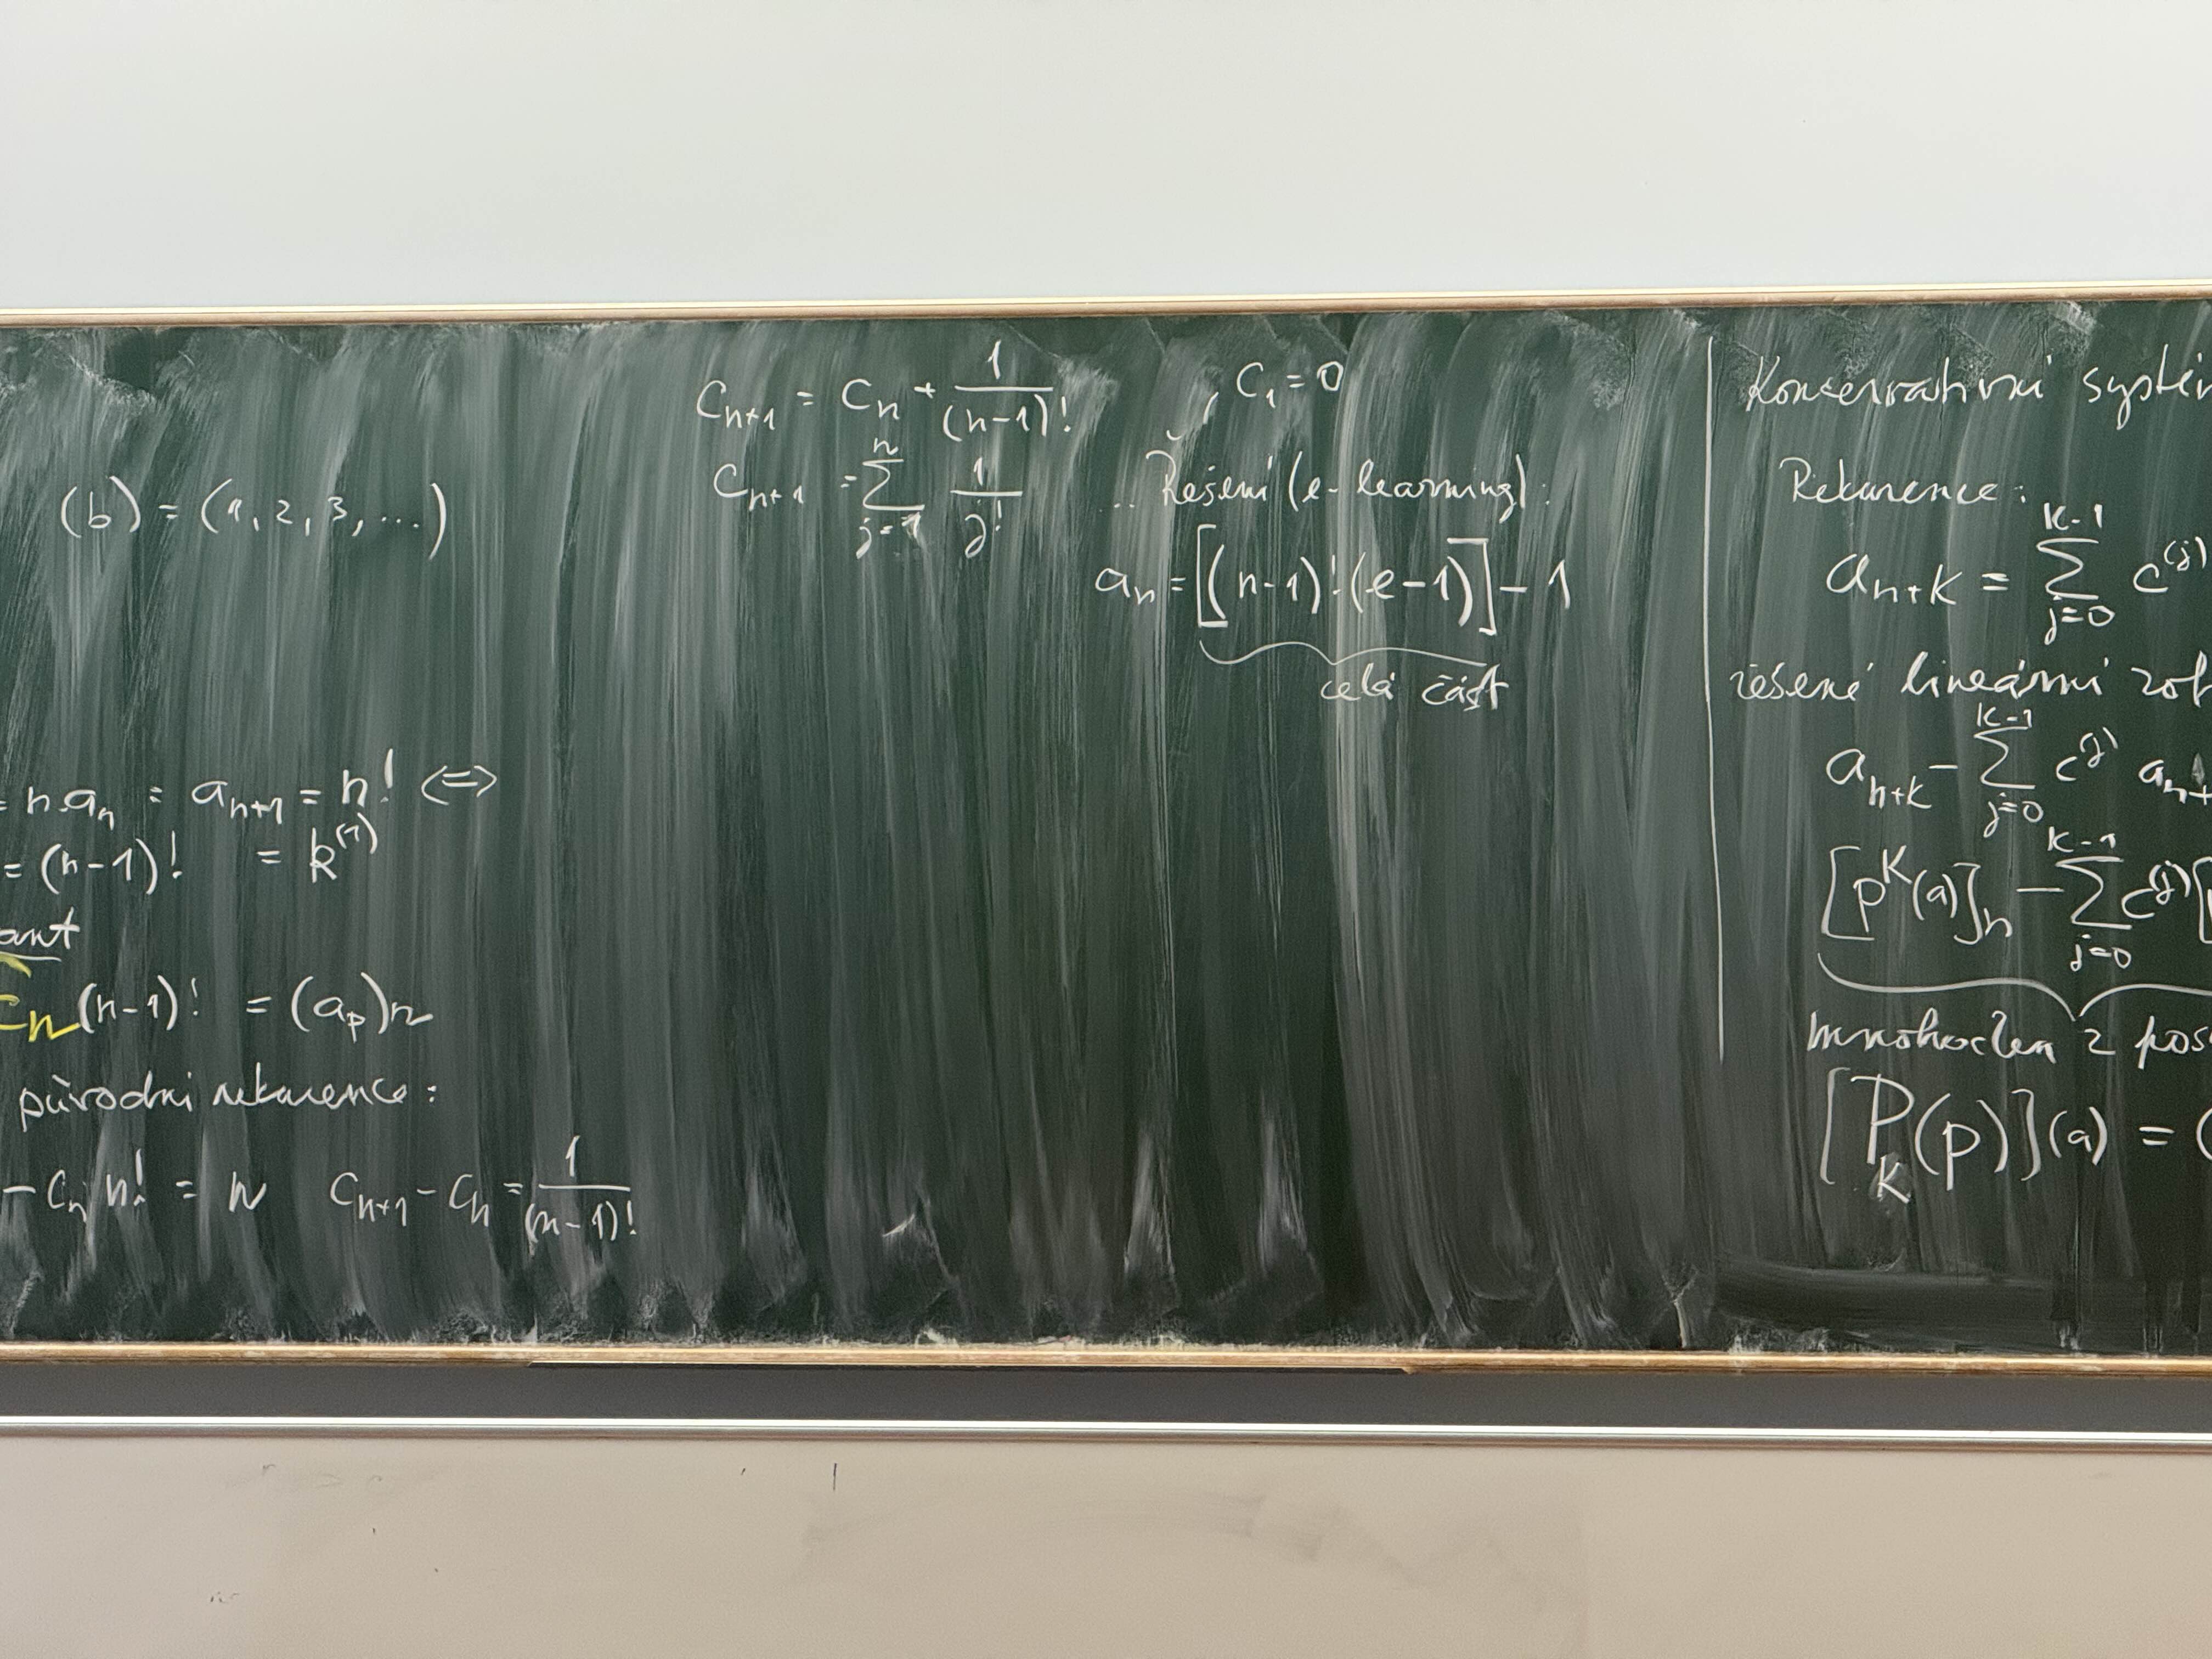 (b) = (1, 2, 3, ...)
= n.aₙ = aₙ₊₁ = n! <=>
= (n-1)! = k⁽¹⁾
ant
cₙ(n-1)! = (aₚ)ₙ
původní rekurence:
- cₙ n! = n   cₙ₊₁ - cₙ = 1/(n-1)!
cₙ₊₁ = cₙ + 1/(n-1)! , c₁ = 0
cₙ₊₁ = ∑_{j=1}^{n} 1/j! ... Řešení (e-learning):
aₙ = [(n-1)!(e-1)] - 1
celá část
Konzervativní systém
Rekurence:
a_{n+k} = ∑_{j=0}^{k-1} c^{(j)}
řešené lineární zob
a_{n+k} - ∑_{j=0}^{k-1} c^{j)} a_{n+
[p^K(a)]_n - ∑_{j=0}^{k-1} c^{(j)} [
mnohočlen z pos
[P_K(p)](a) = (